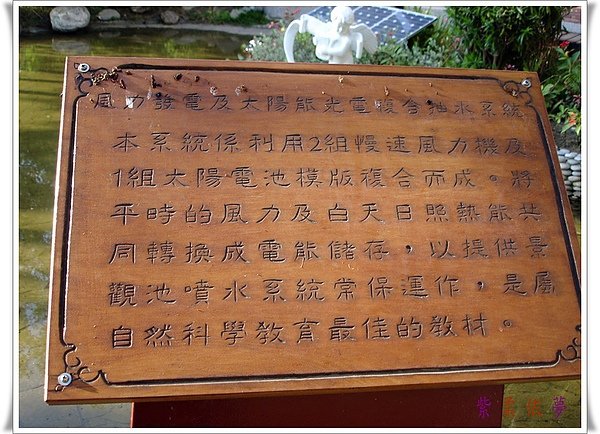 風力發電及太陽能光電複合抽水系統
本系統係利用2組慢速風力機及
1組太陽電池模版複合而成。將
平時的風力及白天日照熱能共
同轉換成電能儲存，以提供景
觀池噴水系統常保運作，是屬
自然科學教育最佳的教材。
紫 夢